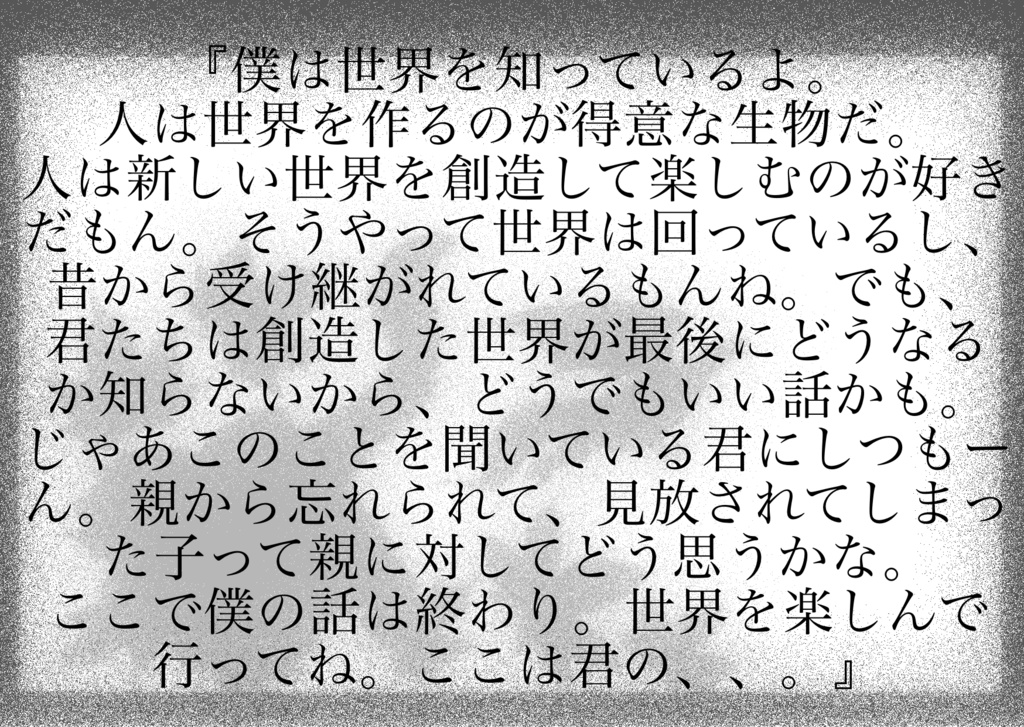 『僕は世界を知っているよ。
人は世界を作るのが得意な生物だ。
人は新しい世界を創造して楽しむのが好き
だもん。そうやって世界は回っているし、
昔から受け継がれているもんね。でも、
君たちは創造した世界が最後にどうなる
か知らないから、どうでもいい話かも。
じゃあこのことを聞いている君にしつもー
ん。親から忘れられて、見放されてしまっ
た子って親に対してどう思うかな。
ここで僕の話は終わり。世界を楽しんで
行ってね。ここは君の、、。』